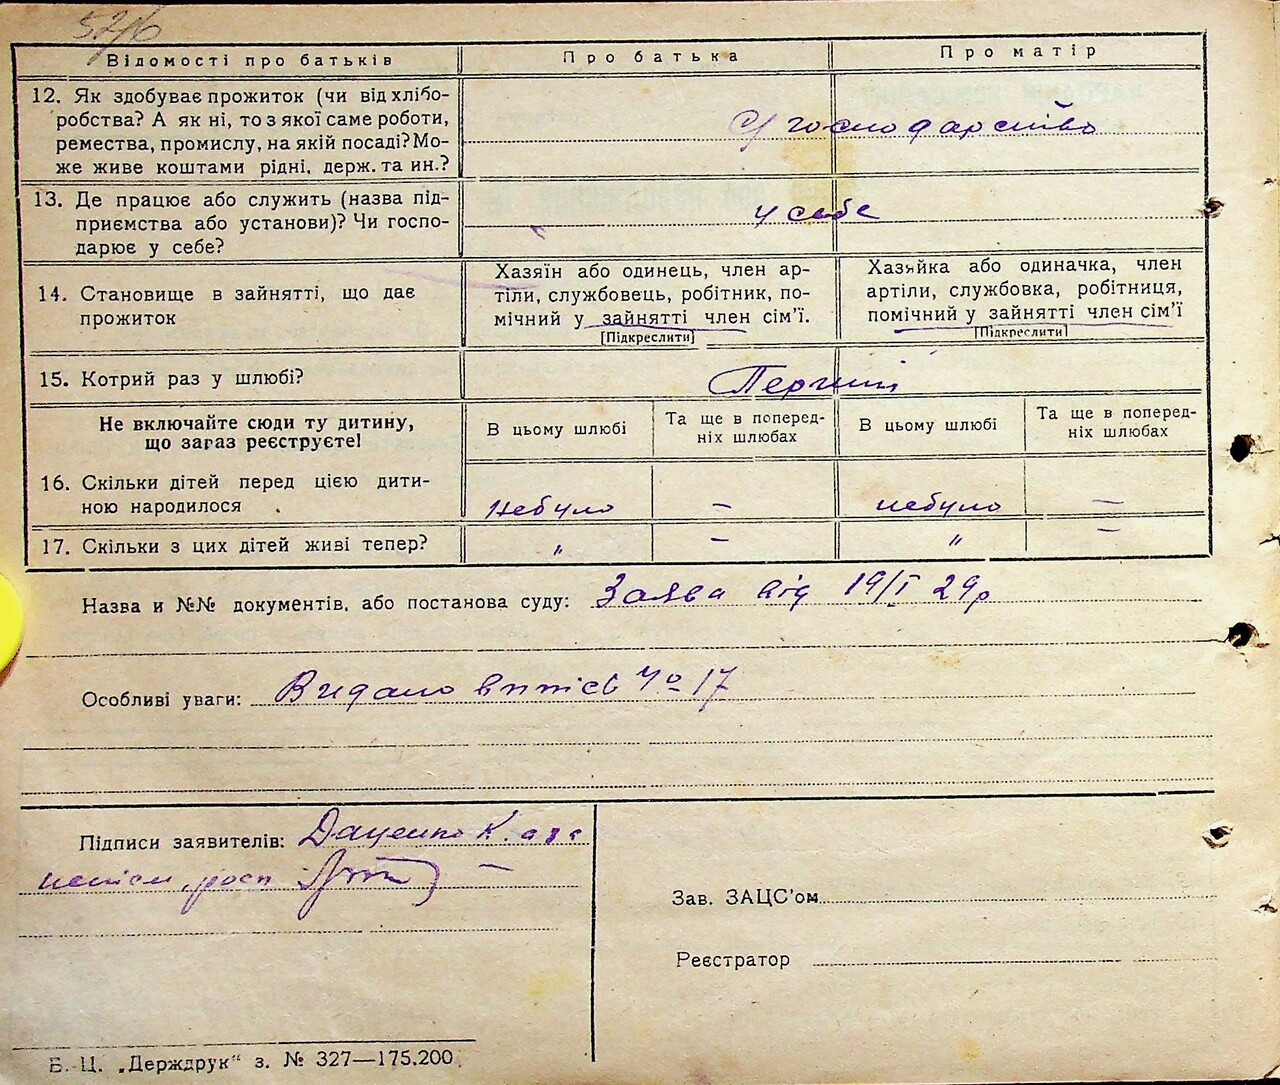 52/6
Відомості про батьків Про батька Про матір
12. Як здобуває прожиток (чи від хлібо-
робства? А як ні, то з якої саме роботи,
ремества, промислу, на якій посаді? Мо-
же живе коштами рідні, держ. та ин.?
С/господарство
13. Де працює або служить (назва під-
приємства або установи)? Чи госпо-
дарює у себе?
у себе
14. Становище в зайнятті, що дає
прожиток
Хазяїн або одинець, член ар-
тіли, службовець, робітник, по-
мічний у зайнятті член сім'ї.
[Підкреслити]
Хазяйка або одиначка, член
артіли, службовка, робітниця,
помічний у зайнятті член сім'ї
[Підкреслити]
15. Котрий раз у шлюбі?
Перший
Не включайте сюди ту дитину,
що загаз реєструєте!
В цьому шлюбі
Та ще в поперед-
ніх шлюбах
В цьому шлюбі
Та ще в поперед-
ніх шлюбах
16. Скільки дітей перед цією дити-
ною народилося
небуло – небуло –
17. Скільки з цих дітей живі тепер?
" – " –
Назва и №№ документів, або постанова суду: Заява від 19/I 29р
Особливі уваги: Видано випісь № 17
Підписи заявителів: Даценко К. а за
непісм. росп.
Зав. ЗАЦС'ом
Реєстратор
Б. Ц. „Держдрук" з. № 327—175.200